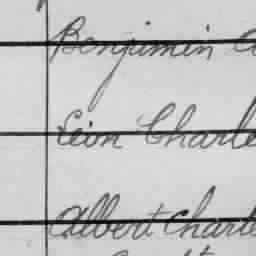 Benjimin
Léon Charle
Albert Charle